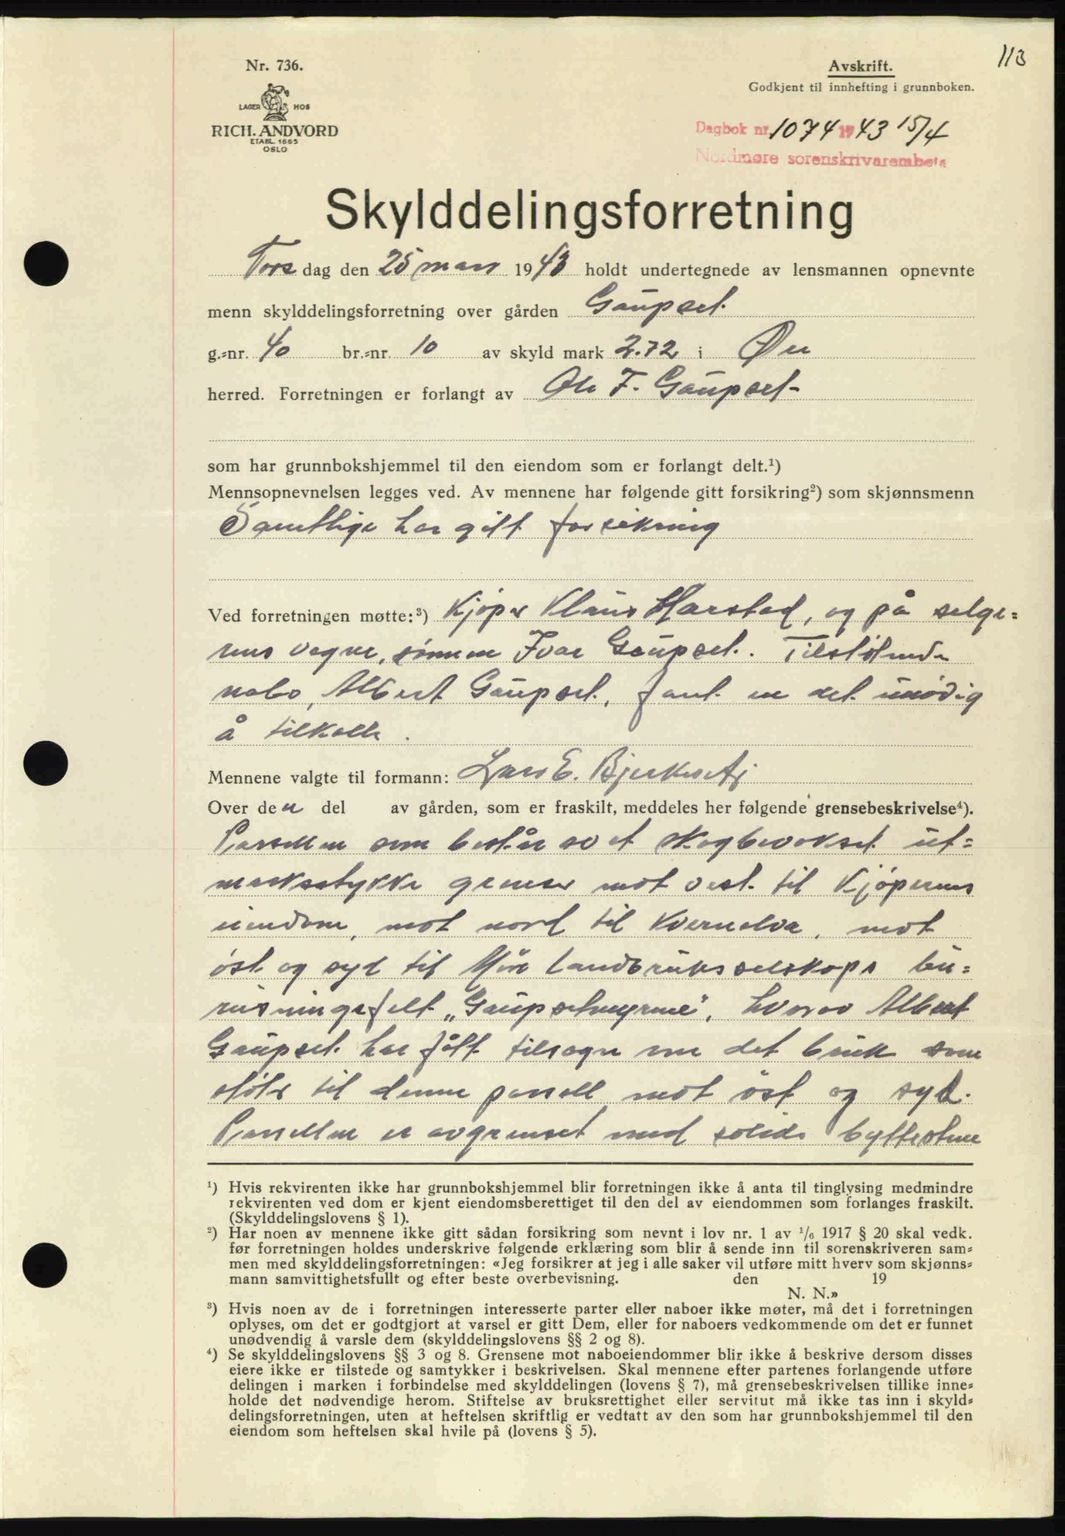 113
Nr. 736.
LAGER HOS
RICH. ANDVORD
ETABL. 1865
OSLO
Avskrift.
Godkjent til innhefting i grunnboken.
Dagbok nr. 1074 1943 15/4
Nordmøre sorenskrivarembete
Skylddelingsforretning
Tors dag den 25 mars 1943 holdt undertegnede av lensmannen opnevnte
menn skylddelingsforretning over gården Gaupset
g.=nr. 40 br.=nr. 10 av skyld mark 2.72 i Øre
herred. Forretningen er forlangt av Ole F. Gaupset
som har grunnbokshjemmel til den eiendom som er forlangt delt.¹)
Mennsopnevnelsen legges ved. Av mennene har følgende gitt forsikring²) som skjønnsmenn
Samtlige har gitt forsikring
Ved forretningen møtte:³) Kjøper Klaus Harstad, og på selge=
rens vegne, sønnen Ivar Gaupset. Tilstøtende
nabo, Albert Gaupset, fant en det unødig
å tilkalle.
Mennene valgte til formann: Lars E. Bjerkeset
Over den del av gården, som er fraskilt, meddeles her følgende grensebeskrivelse⁴).
Parsellen som består av et skogbevokset ut=
marksstykke grenser mot vest til Kjøperens
eiendom, mot nord til Kvernelva, mot
öst og syd til Möre Landbruksselskaps bu=
reisningsfelt "Gaupsetmyrene", hvorav Albert
Gaupset har fått tilsagn om det bruk som
støter til denne parsell mot öst og syd.
Parsellen er avgrenset med solide byttestene
¹) Hvis rekvirenten ikke har grunnbokshjemmel blir forretningen ikke å anta til tinglysing medmindre
rekvirenten ved dom er kjent eiendomsberettiget til den del av eiendommen som forlanges fraskilt.
(Skylddelingslovens § 1).
²) Har noen av mennene ikke gitt sådan forsikring som nevnt i lov nr. 1 av ¹/₆ 1917 § 20 skal vedk.
før forretningen holdes underskrive følgende erklæring som blir å sende inn til sorenskriveren sam=
men med skylddelingsforretningen: «Jeg forsikrer at jeg i alle saker vil utføre mitt hverv som skjønns=
mann samvittighetsfullt og efter beste overbevisning. den 19
N. N.»
³) Hvis noen av de i forretningen interesserte parter eller naboer ikke møter, må det i forretningen
oplyses, om det er godtgjort at varsel er gitt Dem, eller for naboers vedkommende om det er funnet
unødvendig å varsle dem (skylddelingslovens §§ 2 og 8).
⁴) Se skylddelingslovens §§ 3 og 8. Grensene mot naboeiendommer blir ikke å beskrive dersom disses
eiere ikke er tilstede og samtykker i beskrivelsen. Skal mennene efter partenes forlangende utføre
delingen i marken i forbindelse med skylddelingen (lovens § 7), må grensebeskrivelsen tillike inne=
holde det nødvendige herom. Stiftelse av bruksrettighet eller servitut må ikke tas inn i skyld=
delingsforretningen, uten at heftelsen skriftlig er vedtatt av den som har grunnbokshjemmel til den
eiendom som heftelsen skal hvile på (lovens § 5).